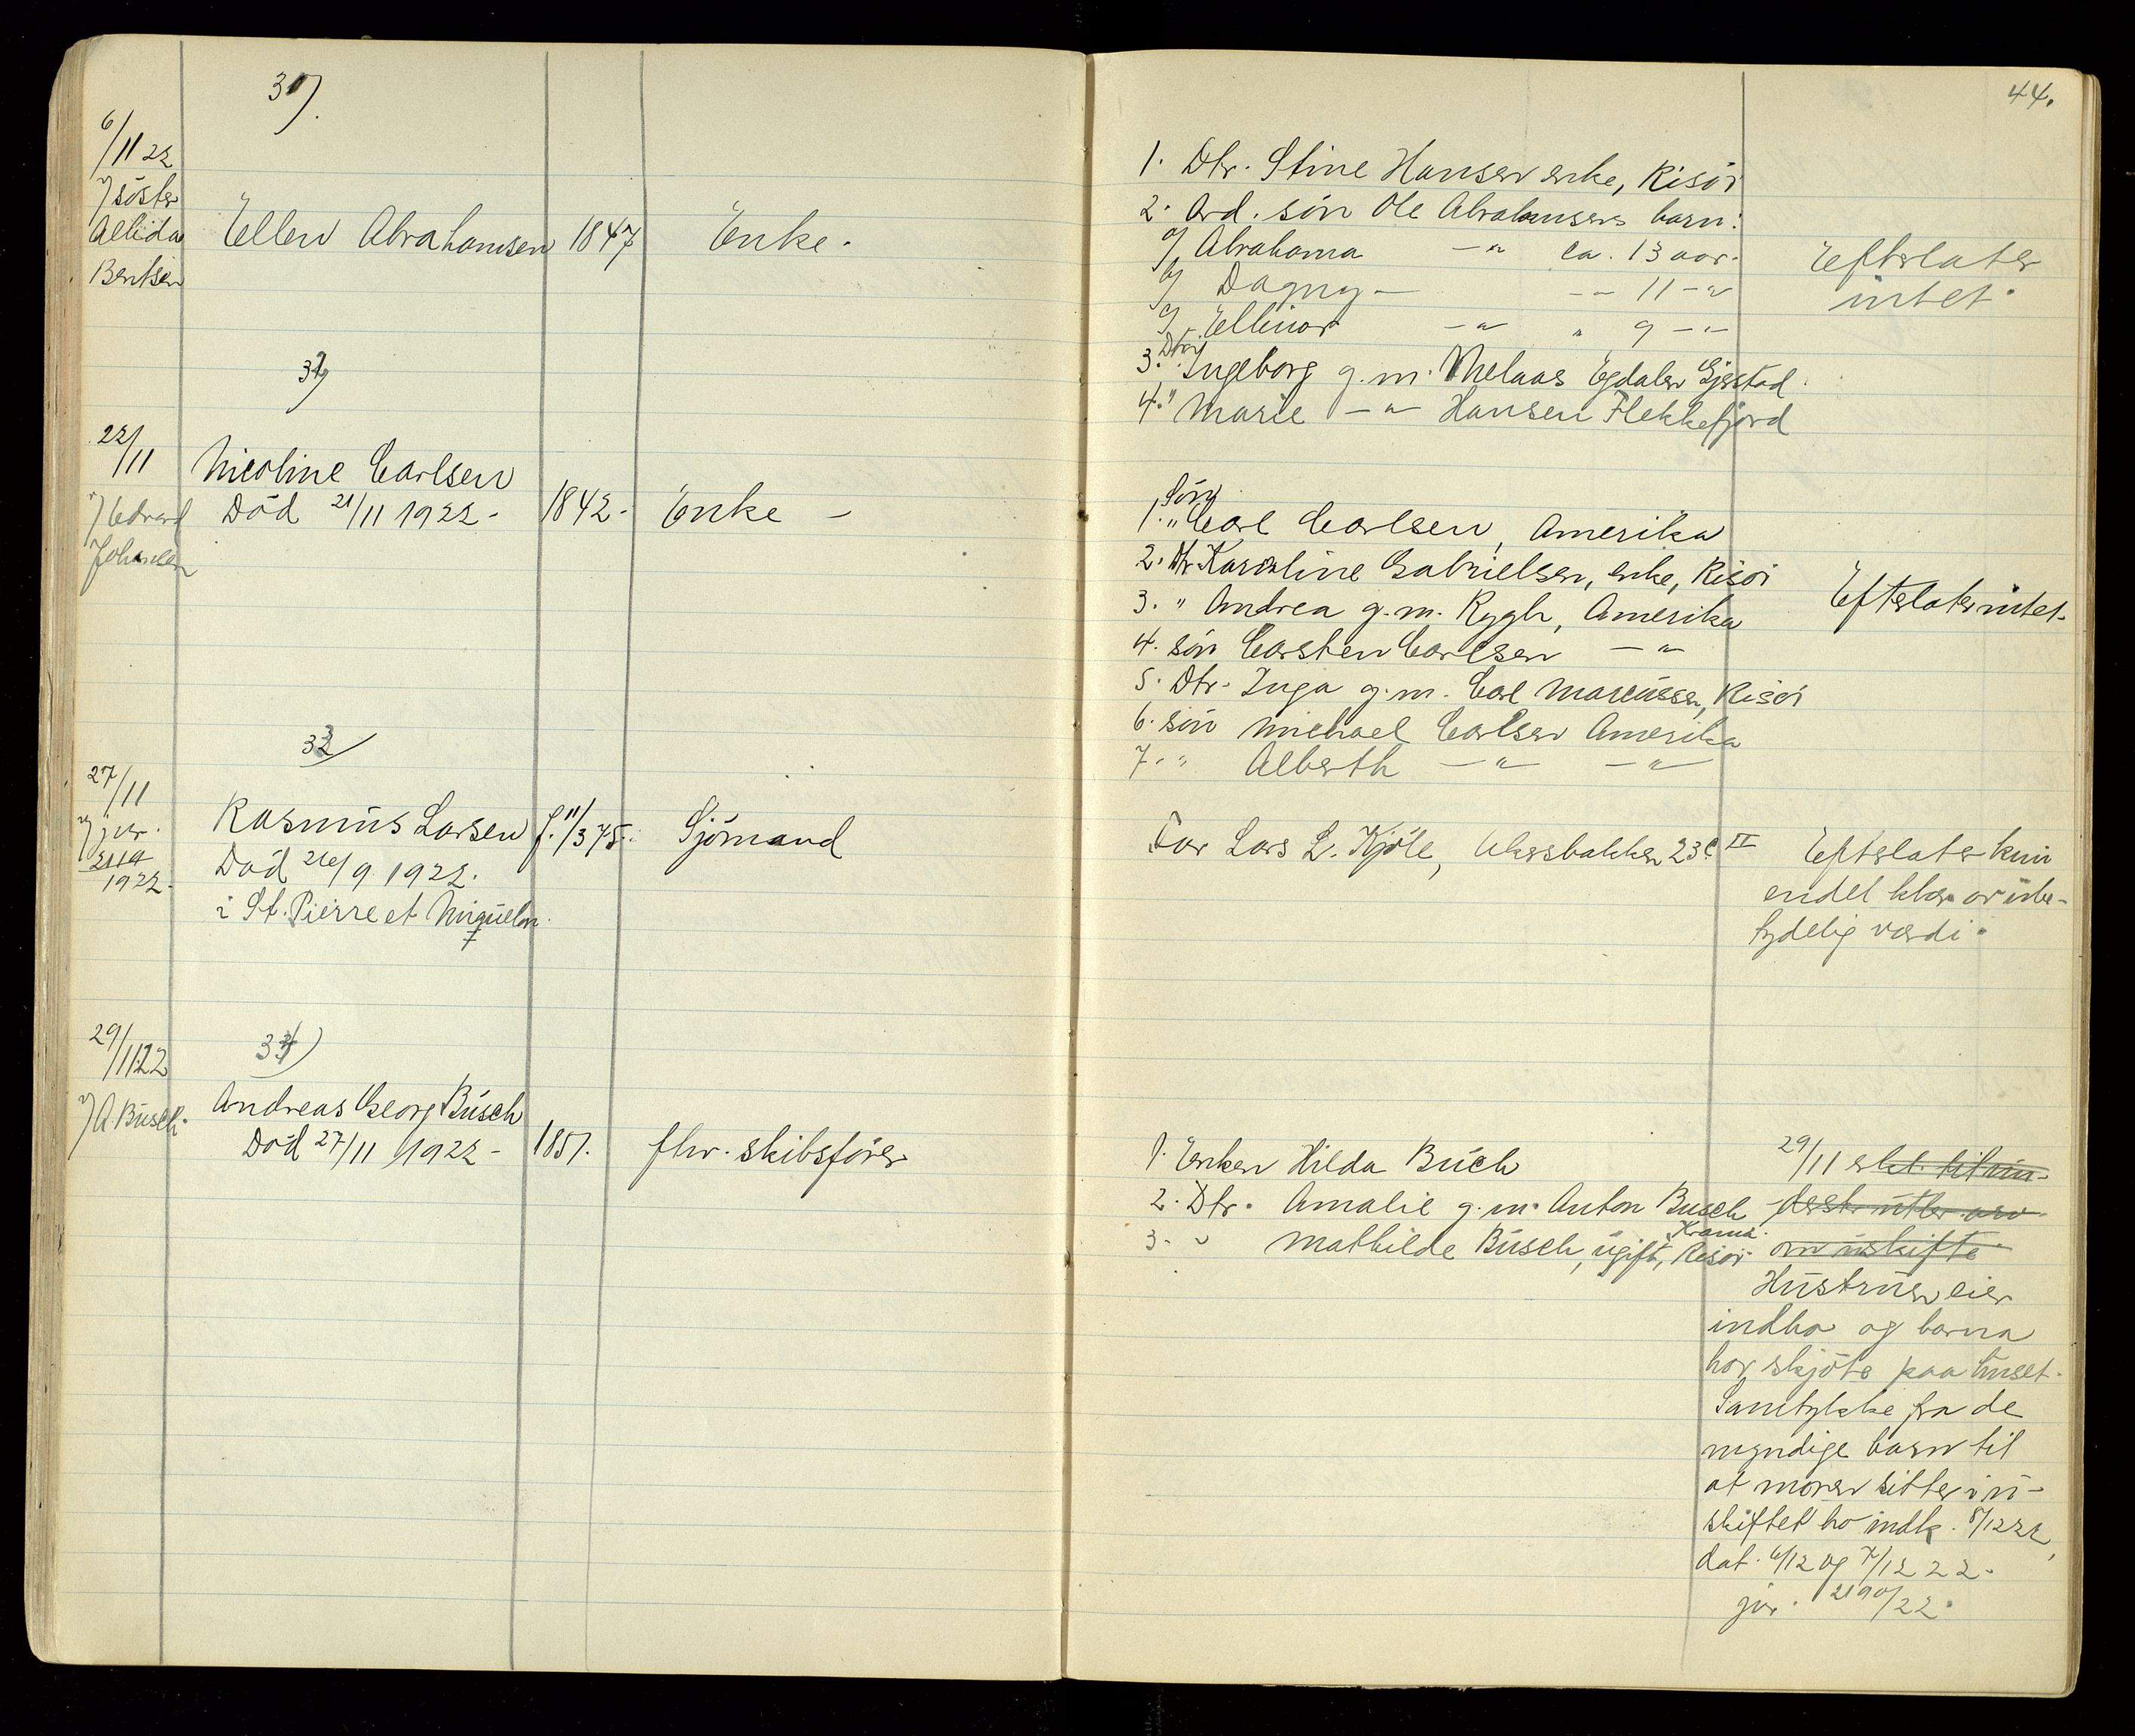 44.
6/11 22
v/ söster
Aelida
Bentsen
Ellen Abrahamsen 1847 Enke.
1. Dtr. Stine Hansen enke, Risör
2. Avd. sön Ole Abrahamsens barn:
a/ Abrahama —"— ca. 13 aar.
b/ Dagny — —"— 11 —"—
c/ Ellinor —"— " 9 —"—
3. Dtr. Ingeborg g.m. Melaas Egdalen Gjerstad
4. " Marie —"— Hansen Flekkefjord
Efterlater
intet.
32)
22/11
v/ Edvard
Johansen
Nicoline Carlsen
Död 21/11 1922. 1842. Enke —
1. Sön Carl Carlsen, Amerika
2. Dtr. Karoline Gabrielsen, enke, Risör
3. " Andrea g.m. Rygh, Amerika
4. sön Carsten Carlsen —"—
5. Dtr. Inga g.m. Carl Marcussen, Risör
6. sön Michael Carlsen Amerika
7. " Alberth —"— —"—
Efterlater intet.
33/
27/11
v/ jnr.
2119
1922.
Rasmus Larsen f. 11/3 75. Sjömand
Död 26/9 1922.
i St. Pierre et Miquelon.
Far Lars L. Kjöle, 23c II
Efterlater kun
endel klær av ube-
tydelig værdi.
34)
29/11 22
v/ A. Busch.
Andreas Georg Busch
Död 27/11 1922 — 1851. fhv. skibsförer
1. Enken Hilda Buch
2. Dtr. Amalie g.m. Anton Busch
3. " Mathilde Busch, ugift, Risör
29/11 erkl. til
om uskifte
Hustruen eier
indbo og barna
har skjöte paa huset.
Samtykke fra de
myndige barn til
at moren sitter i u-
skiftet bo indk. 8/12 22,
dat. 6/12 og 7/12 22.
jnr. 2190/22.